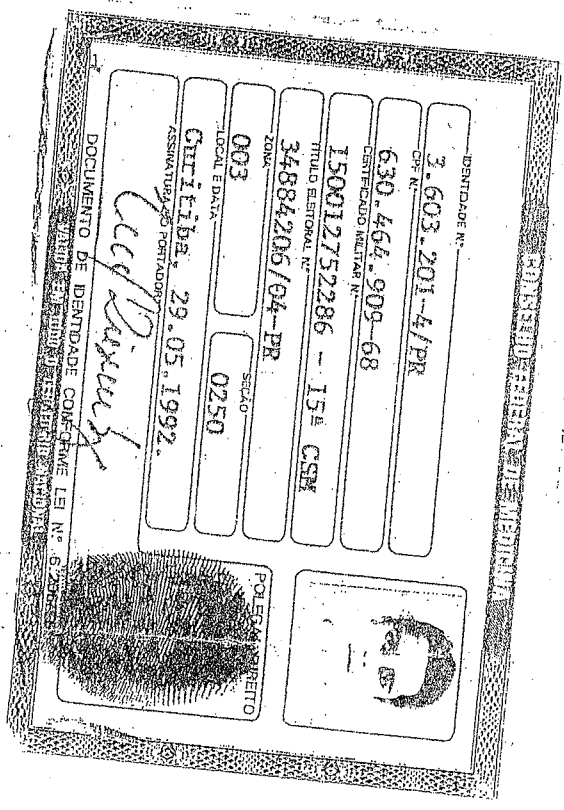 IDENTIDADE Nº
3.603.201-4/PR
CPF Nº
630.464.909-68
CERTIFICADO MILITAR Nº
150012752286 - 15ª CSM
TÍTULO ELEITORAL Nº
34884206/04-PR
ZONA
003
SEÇÃO
0250
LOCAL E DATA
Curitiba, 29.05.1992.
ASSINATURA DO PORTADOR
POLEGAR DIREITO
DOCUMENTO DE IDENTIDADE CONFORME LEI Nº